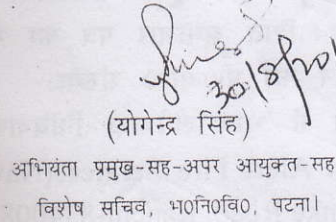 30/8/201
(योगेन्द्र सिंह)
अभियंता प्रमुख-सह-अपर आयुक्त-सह
विशेष सचिव, भ०नि०वि०, पटना।